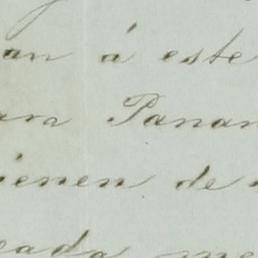 an á este
ara Panam
ienen de
eada me